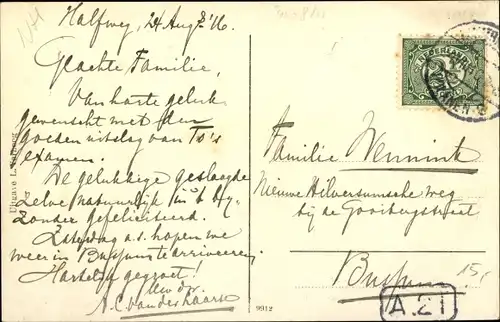 Halfweg, 24 Aug '16.
Geachte Familie,
Van harte geluk
gewenscht met den
goeden uitslag van To's
examen.
De gelukkige geslaagde
zelve natuurlijk in 't bij-
zonder gefeliciteerd.
Zaterdag a.s. hopen we
weer in Bussum te arriveeren.
Hartelijk gegroet!
Uw dw.
A. C. van der Laarse
Familie Wennink
Nieuwe Hilversumsche weg
bij de Gooibergstraat
Bussum
15
A.21
9912
NEDERLAND